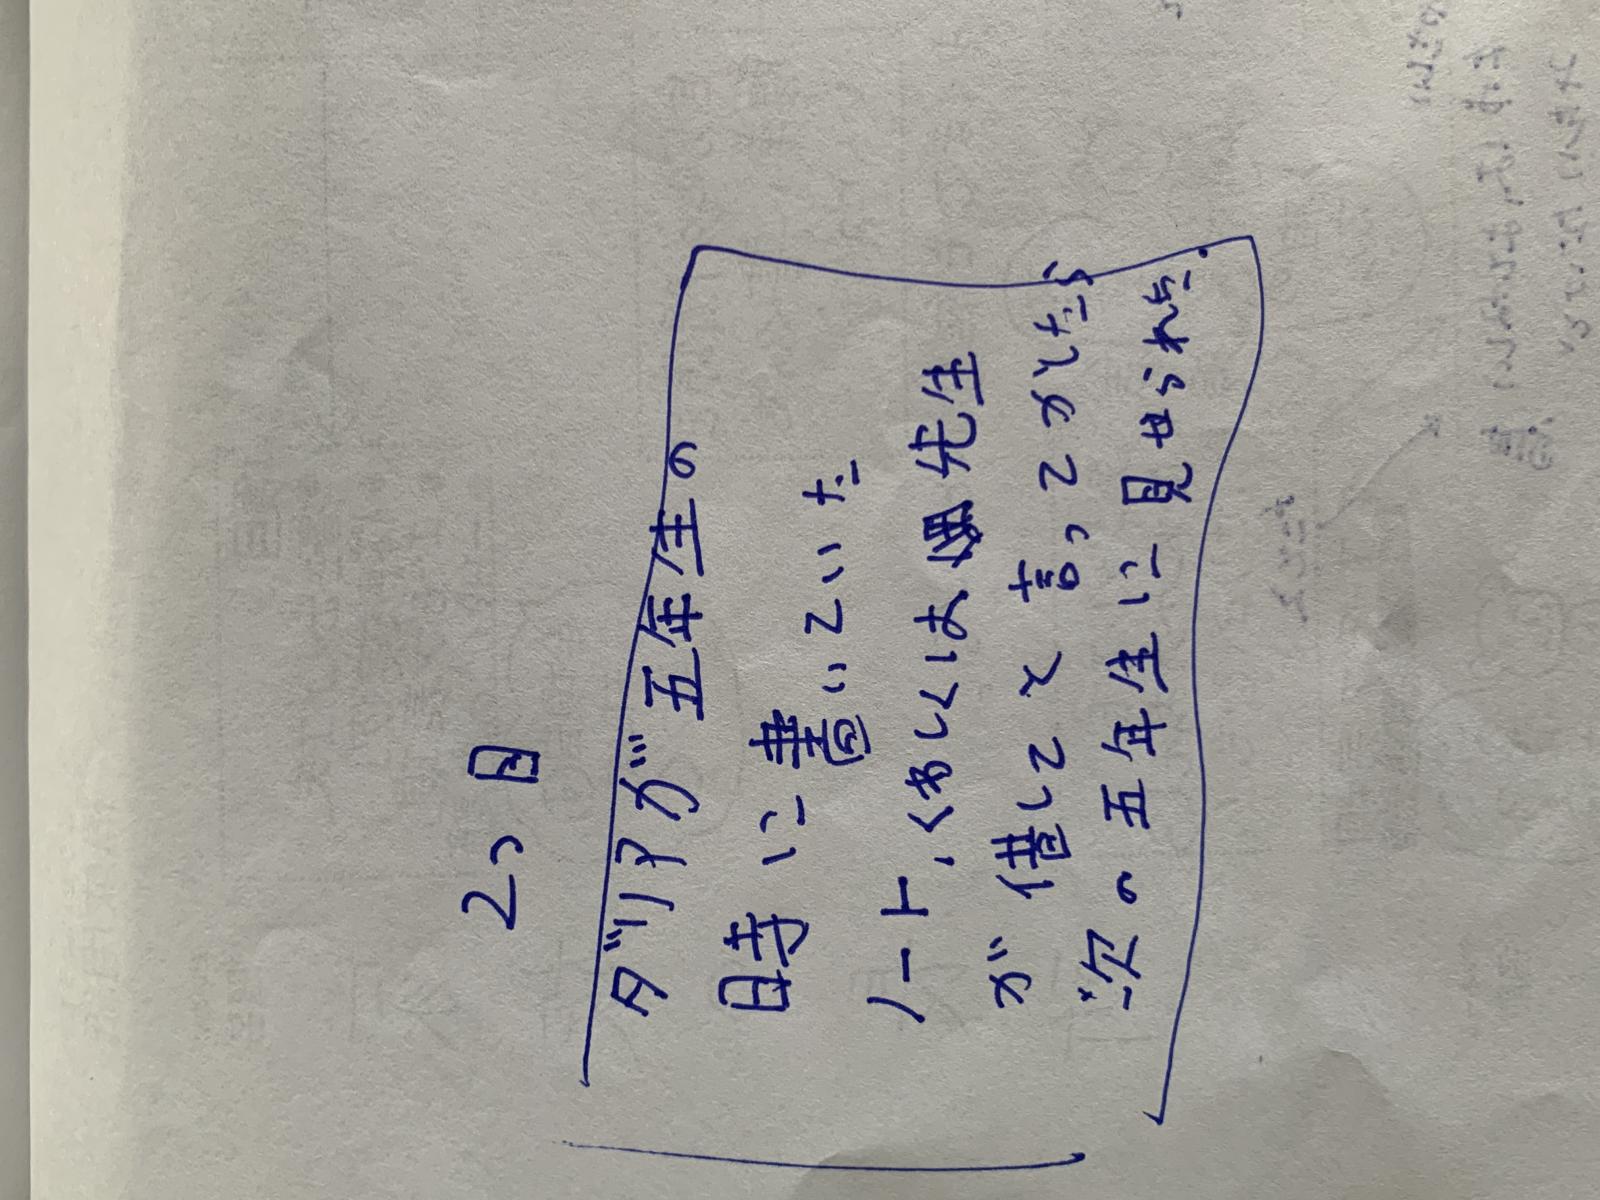 2つ目
ダリアが五年生の
時に書いていた
ノート、くわしくは
先生
が貸してと言ってめくったら
次の五年生に見せられた.